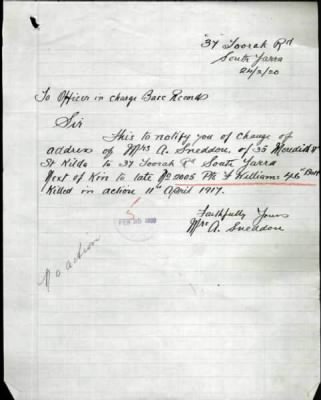 37 Toorak Rd
South Yarra
24/2/20
To Officer in charge Base Records
Sir
This to notify you of change of
address of Mrs A. Sneddon, of 35 Meredith St
St Kilda to 37 Toorak Rd South Yarra
Next of Kin to late No 2005 Pte F Williams 46th Batt
Killed in action 11th April 1917.
Faithfully Yours
Mrs A. Sneddon
FEB 1920
No action